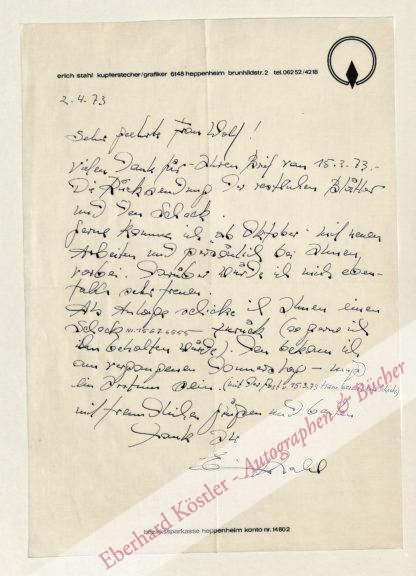 erich stahl kupferstecher/grafiker 6148 heppenheim brunhildstr. 2 tel. 06252/4218
2.4.73
Sehr geehrte Frau Wolf!
Vielen Dank für Ihren Brief vom 15.3.73.-
Die Rücksendung der restlichen Blätter
und den Scheck.
Gerne komme ich ab Oktober mit neuen
Arbeiten und persönlich bei Ihnen
vorbei. Darüber würde ich mich eben-
falls sehr freuen.
Als Anlage schicke ich Ihnen einen
Scheck zurück (so gerne ich
ihn behalten würde). Den bekam ich
am vergangenen Donnerstag - muß
ein Irrtum sein. (mit der Post v. 15.3.73
mit freundlichen Grüßen und besten
Dank Ihr
Stahl
Eberhard Köstler - Autographen & Bücher
bezirkssparkasse heppenheim konto nr. 14802